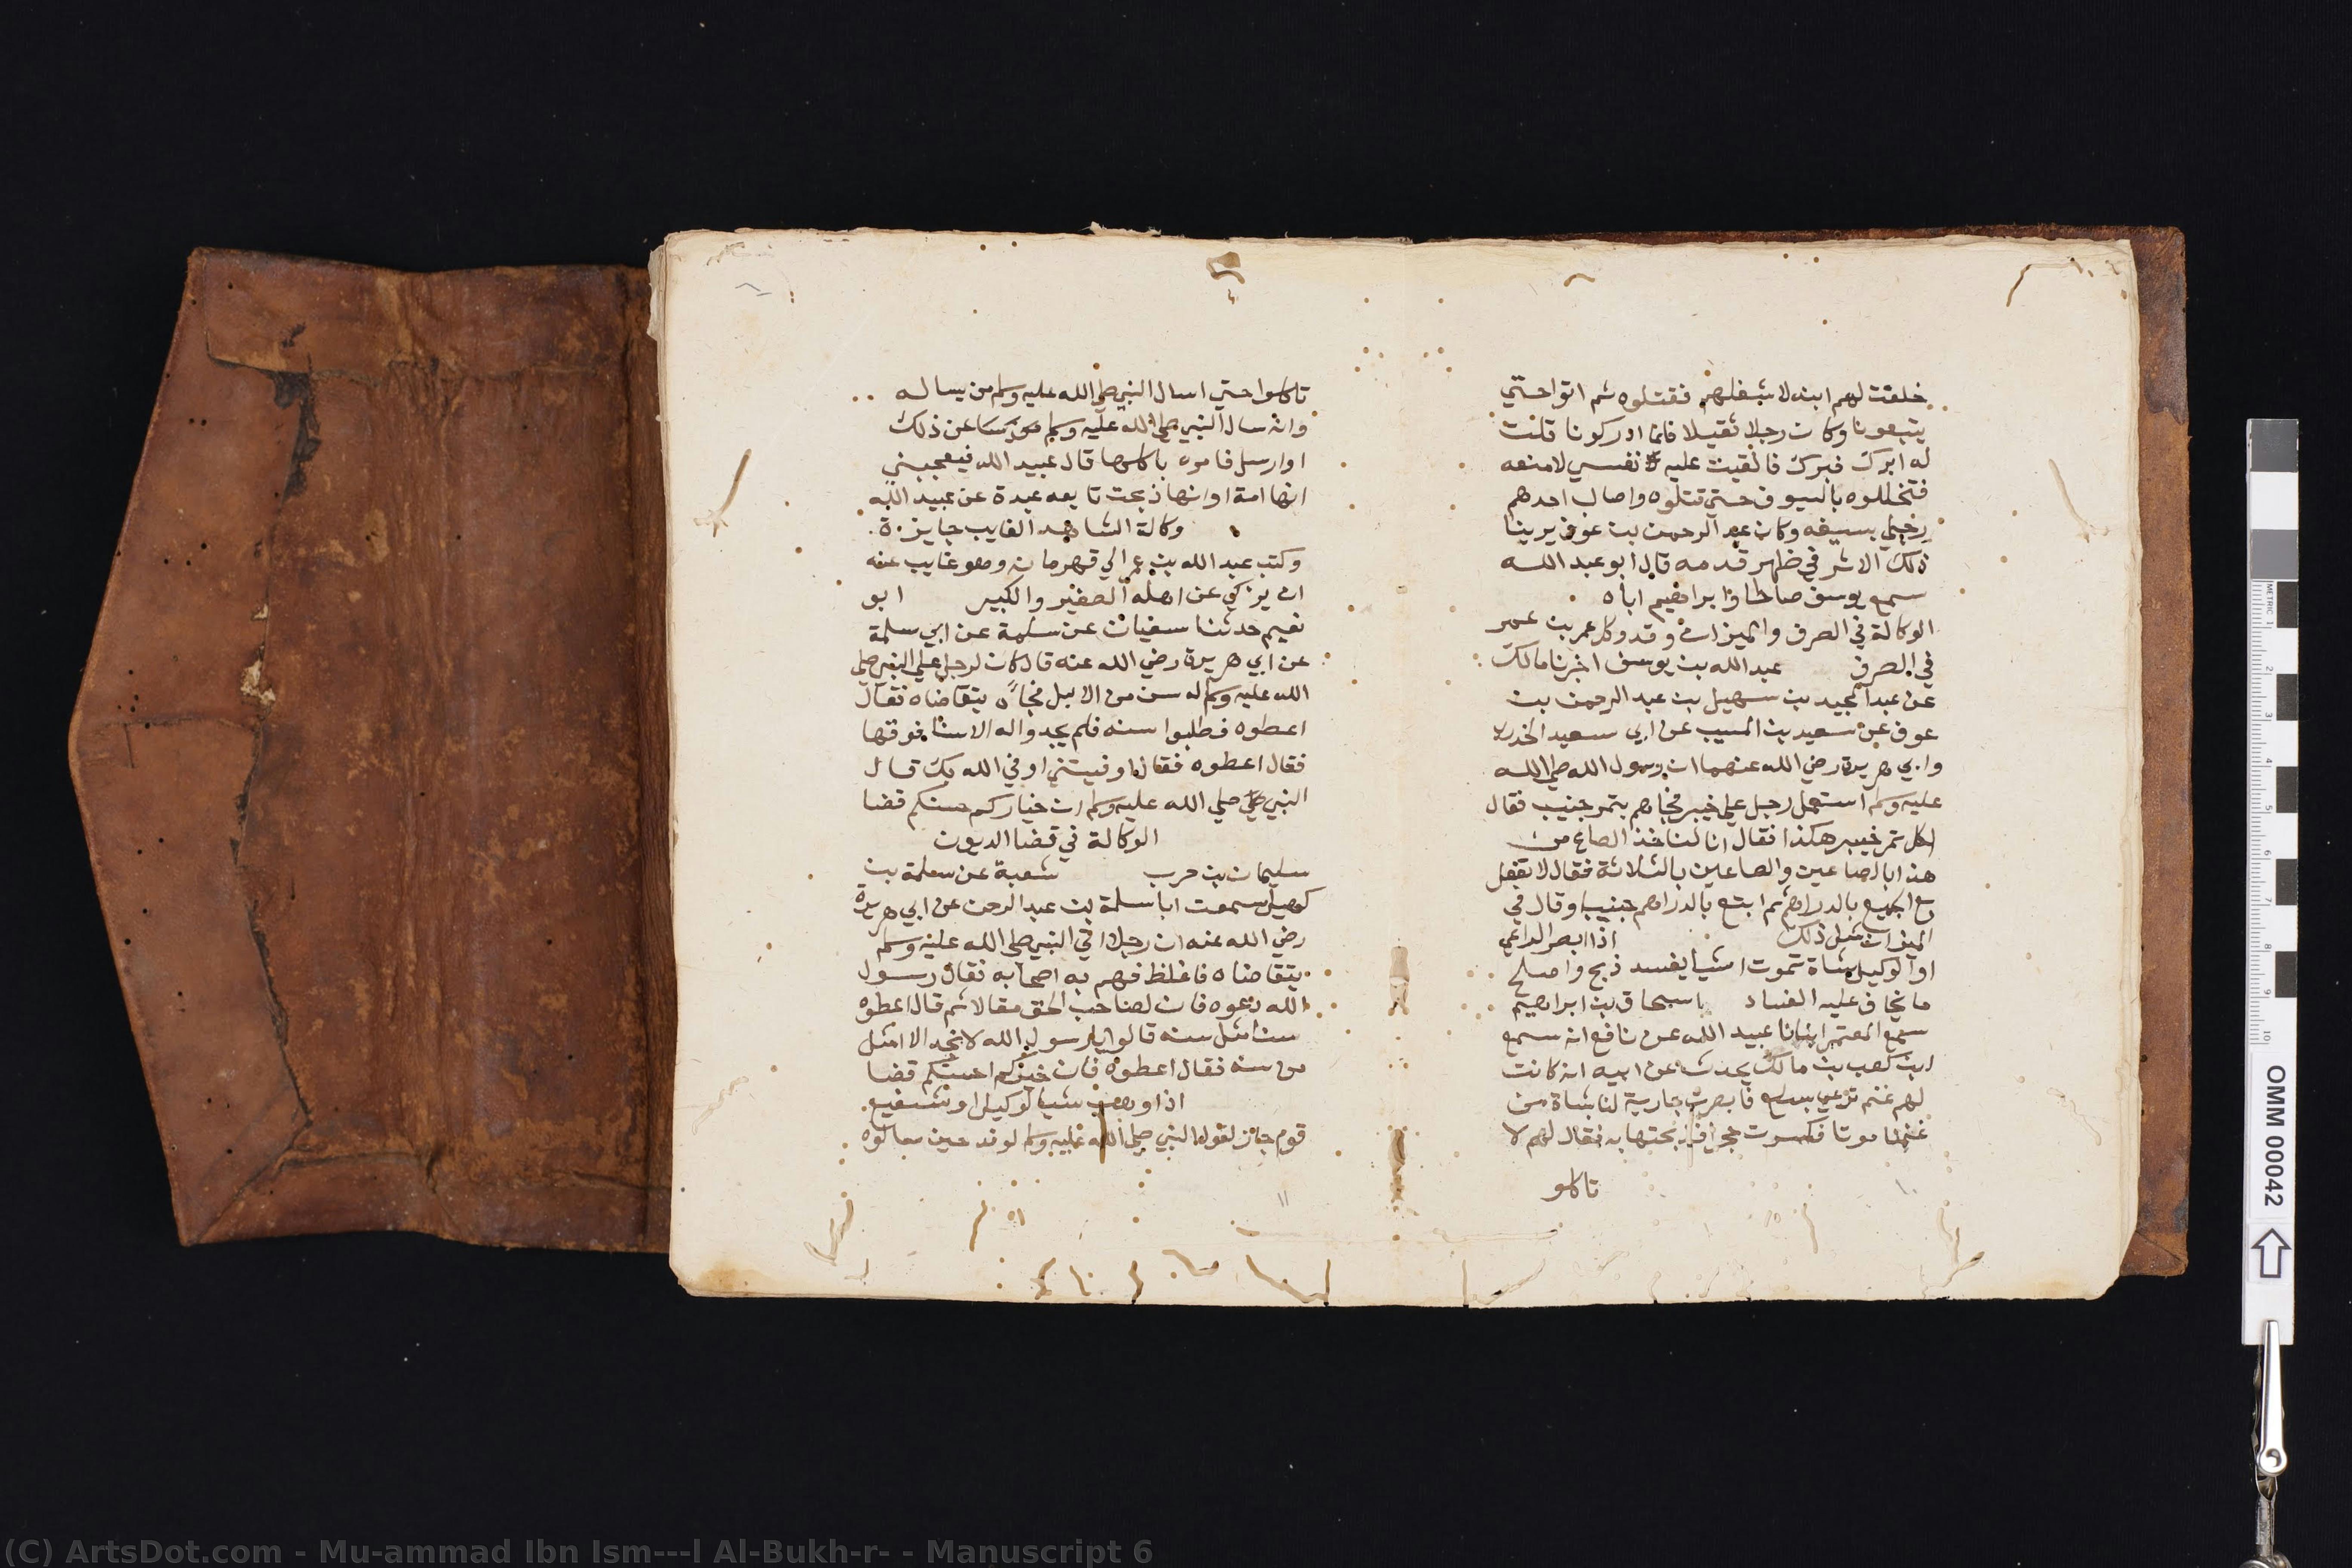 خلفت لهم ابنه لاشغلهم فقتلوه ثم اتواحتي
يتبعونا وكان رجلا ثقيلا فلما ادركونا قلت
له ابرك فبرك فالقيت عليه نفسي لامنعه
فتخللوه بالسيوف حتي قتلوه واصاب احدهم
رجلي بسيفه وكان عبد الرحمن بن عوف يرينا
ذلك الاثر في ظهر قدمه قال ابو عبد الله
سمع يوسف صالحا وابراهيم اباه
الوكالة في الصرف والميزان وقد وكل عمر بن عمر
في الصرف عبد الله بن يوسف اخبرنا مالك
عن عبد المجيد بن سهيل بن عبد الرحمن بن
عوف عن سعيد بن المسيب عن ابي سعيد الخدري
وابي هريرة رضي الله عنهما ان رسول الله صلي الله
عليه وسلم استعمل رجل علي خيبر فجاهم بتمر جنيب فقال
اكل تمر خيبر هكذا فقال انا لناخذ الصاع من
هذا بالصاعين والصاعين بالثلاثة فقال لا تفعل
بع الجميع بالدراهم ثم ابتع بالدراهم جنيبا وقال في
الميزان مثل ذلك اذا ابصر الراعي
او الوكيل شاة تموت اشيا يفسد ذبح واصلح
ما يخاف عليه الفساد اسحاق بن ابراهيم
سمع المعتمر انبانا عبيد الله عن نافع انه سمع
ابن كعب بن مالك يحدث عن ابيه انه كانت
لهم غنم ترعي بسلع فابصرت جارية لنا بشاة من
غنمنا موتا فكسرت حجرا فذبحتها به فقال لهم لا
تاكلو
تاكلوا حتي اسال النبي صلي الله عليه وسلم من يساله
وانه سال النبي صلي الله عليه وسلم عن ذلك
او ارسل فامره باكلها قال عبيد الله فيعجبني
انها امة وانها ذبحت تابعه عبدة عن عبيد الله
وكالة الشاهد الغايب جايزة
وكتب عبد الله بن عمر الي قهرمانه وهو غايب عنه
ان يزكي عن اهله الصغير والكبير ابو
نعيم حدثنا سفيان عن سلمة عن ابي سلمة
عن ابي هريرة رضي الله عنه قال كان لرجل علي النبي صلي
الله عليه وسلم له سن من الابل فجاه يتقاضاه فقال
اعطوه فطلبوا سنه فلم يجدوا له الا سنا فوقها
فقال اعطوه فقال اوفيتني اوفي الله بك قال
النبي صلي الله عليه وسلم ان خياركم حسنكم قضا
الوكالة في قضا الديون
سليمان بن حرب شعبة عن سلمة بن
كهيل سمعت ابا سلمة بن عبد الرحمن عن ابي هريرة
رضي الله عنه ان رجلا اتي النبي صلي الله عليه وسلم
يتقاضاه فاغلظ فهم به اصحابه فقال رسول
الله دعوه فان لصاحب الحق مقالا ثم قال اعطوه
سنا مثل سنه قالوا يا رسول الله لا نجد الا امثل
من سنه فقال اعطوه فان خيركم احسنكم قضا
اذا وهب شيا لوكيل او شفيع
قوم جاز لقول النبي صلي الله عليه وسلم لوفد حين سالوه
OMM 00042
METRIC 1 2 3 4 5 6 7 8 9 10
(C) ArtsDot.com - Mu-ammad Ibn Ism---l Al-Bukh-r- - Manuscript 6